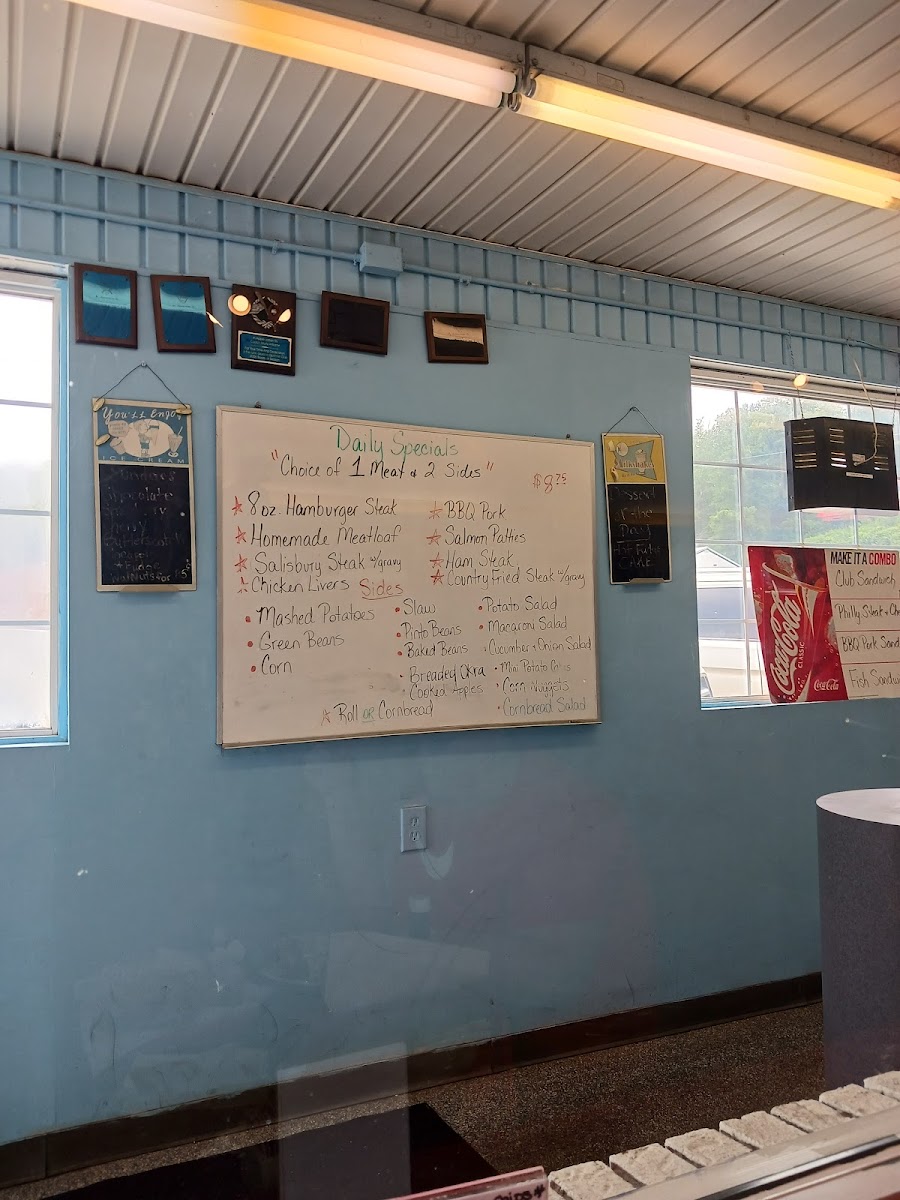 Daily Specials
"Choice of 1 Meat & 2 Sides"
$8.75
8 oz. Hamburger Steak
Homemade Meatloaf
Salisbury Steak w/gravy
Chicken Livers
BBQ Pork
Salmon Patties
Ham Steak
Country Fried Steak w/gravy
Sides
Mashed Potatoes
Green Beans
Corn
Slaw
Pinto Beans
Baked Beans
Breaded Okra
Cooked Apples
Potato Salad
Macaroni Salad
Cucumber & Onion Salad
Mini Potato
Corn Nuggets
Cornbread Salad
Roll or Cornbread
You'll Enjoy
ICE CREAM
Chocolate
Milkshakes
MAKE IT A COMBO
Club Sandwich
Philly Steak & Che
BBQ Pork Sand
Fish Sandw
Coca-Cola
CLASSIC
Coca-Cola